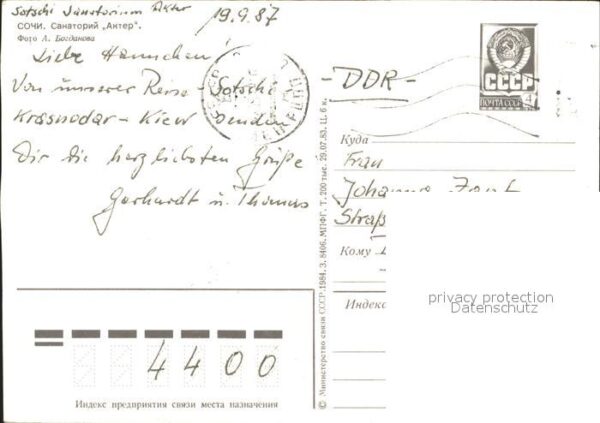 Sotschi Sanatorium Akter
19.9.87
СОЧИ. Санаторий „Актер“.
Фото А. Богданова
Liebe Hannchen!
Von unserer Reise - Sotschi
Krasnodar - Kiew senden
Dir die herzlichsten Grüße
Gerhardt u. Thomas
- DDR -
СССР
ПОЧТА СССР
4
Куда
Frau
Johanna
Straß
Кому
Индекс
privacy protection
Datenschutz
© Министерство связи СССР. 1984. З. 8406. МПФГ. Т. 200 тыс. 29.07.83. Ц. 6 к.
4400
Индекс предприятия связи места назначения